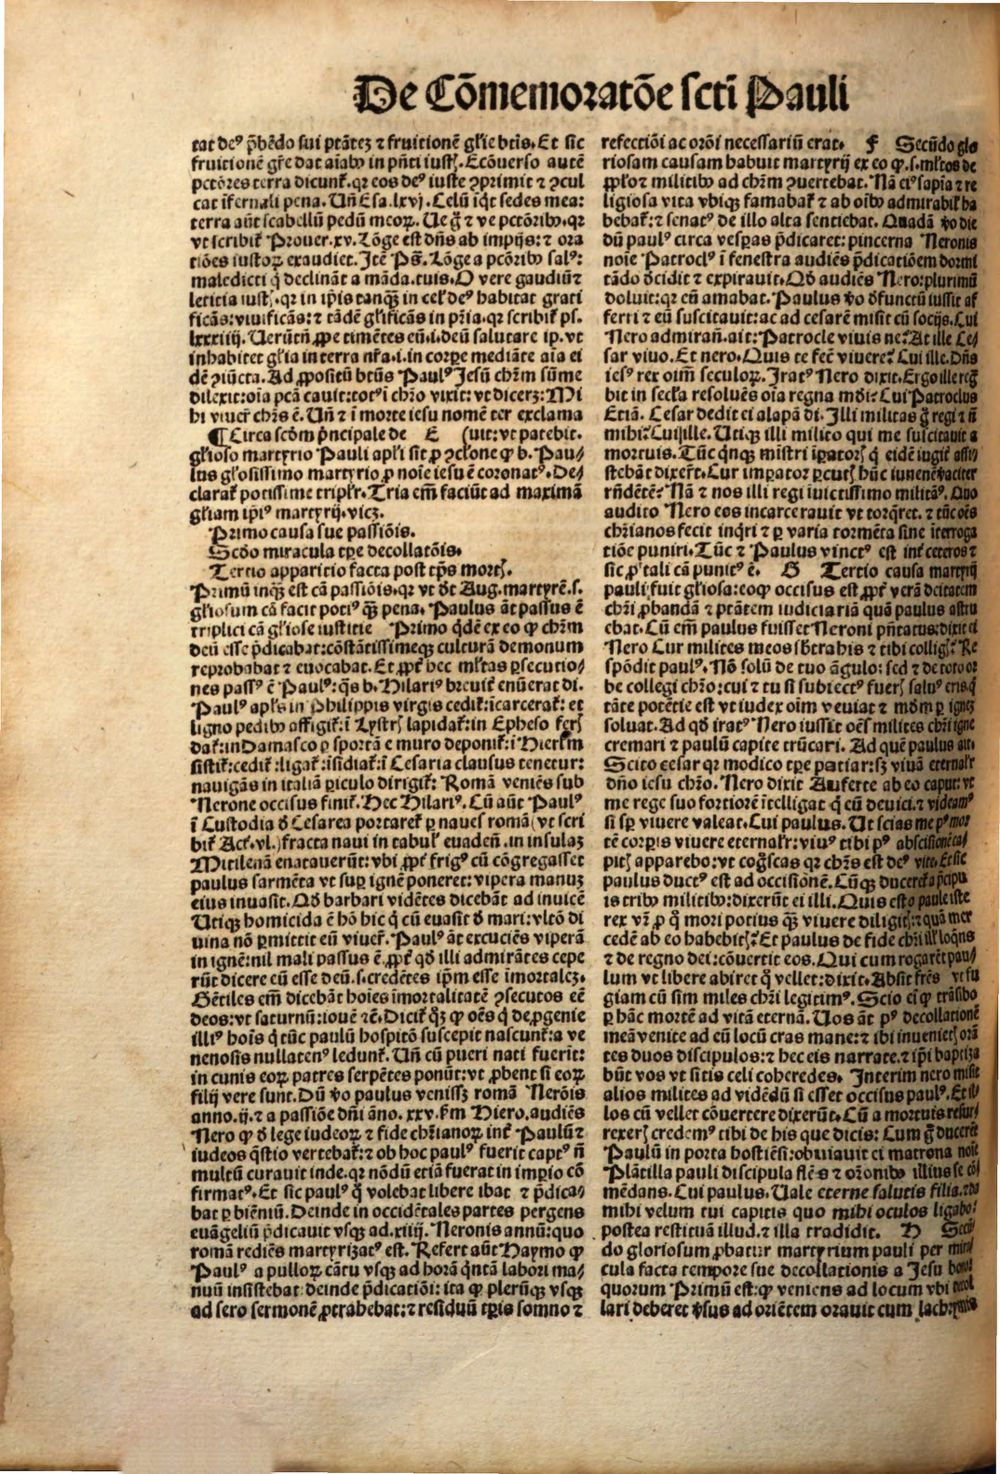 De Cōmemoratōe scti Pauli
tat deꝰ p̄bēdo sui ptātez ⁊ fruitionē gl'ie btīs. Et sic
fruitionē gr̄e dat aīabꝰ in pn̄ti iustꝭ. Ecōuerso autē
pctōres terra dicunt̄. qr eos deꝰ iuste ꝯprimit ⁊ ꝯcul
cat īfernali pena. Vn̄ Esa. lxvj. Celū iqt sedes mea:
terra aūt scabellū pedū meoꝝ. Ue gͦ ⁊ ve pctōribꝰ. qr
vt scribit̄ Prouer. xv. Lōge est dn̄s ab impijs: ⁊ ora
tiōes iustoꝝ exaudiet. Itē Ps̄. Lōge a pctōribꝰ salꝰ:
maledicti q̄ declināt a māda. tuis. O vere gaudiū ⁊
leticia iustꝭ. qr in ip̄is tanqꝫ in cel' deꝰ habitat grati
ficās: viuificās: ⁊ tādē gl'ificās in pr̄ia. qr scribit̄ ps.
lxxxiiij. Uerūtn̄ ꝓpe timētes eū. i. deū salutare ip. vt
inhabitet gl'ia in terra nr̄a. i. in corꝑe mediāte aīa ei
dē ꝯiūcta. Ad ꝓpositū btūs Paulꝰ Jesū chr̄m sūme
dilexit: oīa pcā cauit: totꝰ ī chr̄o vixit: vt dicerꝫ: Mi
hi viuer̄ chr̄s ē. Vn̄ ⁊ ī morte iesu nomē ter exclama
¶ Circa scd̄m p̄ncipale de E (uit: vt patebit.
gl'ioso martyrio Pauli apl'i sit ꝓ ꝯcl'one ꝙ b. Pau-
lus gl'osissimo martyrio ꝓ noīe iesu ē coronatꝰ. De-
clarat̄ potissime triplr̄. Tria em̄ faciūt ad maximā
gl'iam ip̄iꝰ martyrij. vicꝫ.
Primo causa sue passiōis.
Scd̄o miracula tꝑe decollatōis.
Tertio apparitio facta post tꝑs mortꝭ.
Primū inqꝫ est cā passiōis. qr vt dt̄ Aug. martyrē. s.
gl'iosum cā facit potiꝰ qꝫ pena. Paulus āt passus ē
triplici cā gl'iose iustitie Primo qdē ex eo ꝙ chr̄m
deū esse p̄dicabat: cōstātissimeqꝫ culturā demonum
reprobabat ⁊ euocabat. Et ꝓpt̄ hec ml'tas ꝑsecutio-
nes passꝰ ē Paulꝰ: qs̄ b. Hilariꝰ breuit̄ enūerat di.
Paulꝰ apl's in Philippis virgis cedit̄: īcarcerat̄: et
ligno pedibꝰ affigit̄: ī Lystrꝭ lapidat̄: in Epheso ferꝭ
dat̄: in Damasco ꝑ sportā e muro deponit̄: ī Hierlm̄
sistit̄: cedit̄: ligat̄: īsidiat̄: ī Cesaria clausus tenetur:
nauigās in italiā ꝑiculo dirigit̄: Romā veniēs sub
Nerone occisus finit̄. Hec Hilariꝰ. Cū aūt Paulꝰ
ī Custodia d̄ Cesarea portaret̄ ꝑ naues romā (vt scri
bit̄ Act. vl.) fracta naui in tabul' euadeñ. in insulaꝫ
Mitilenā enatauerūt: vbi ꝓpt̄ frigꝰ cū cōgregasset
paulus sarmēta vt suꝑ ignē poneret: vipera manuꝫ
eius inuasit. Qd̄ barbari vidētes dicebāt ad inuicē
Utiqꝫ homicida ē hō hic q̄ cū euasit d̄ mari: vltō di
uina nō ꝑmittit eū viuer̄. Paulꝰ āt excuciēs viperā
in ignē: nil mali passus ē. ꝓpt̄ qd̄ illi admirātes cepe
rūt dicere eū esse deū. s. credētes ip̄m esse īmortalez.
Gētiles em̄ dicebāt hoīes īmortalitatē ꝯsecutos eē
deos: vt saturnū: iouē ⁊c̄. Dicit̄ qꝫ ꝙ oēs q̄ de ꝓgenie
illiꝰ hoīs q̄ tūc paulū hospitō suscepit nascunt̄: a ve
nenosis nullatenꝰ ledunt̄. Un̄ cū pueri nati fuerīt:
in cunis eoꝝ patres serpētes ponūt: vt ꝓbent si eoꝝ
filij vere sunt. Dū v̄o paulus venissꝫ romā Nerōis
anno. ij. ⁊ a passiōe dn̄i āno. xxv. s̄m Hiero. audiēs
Nero ꝙ d̄ lege iudeoꝝ ⁊ fide chr̄ianoꝝ int̄ Paulū ⁊
iudeos qs̄tio vertebat̄: ⁊ ob hoc paulꝰ fuerit captꝰ n̄
multū curauit inde. qr nōdū etiā fuerat in imꝑio cō
firmatꝰ. Et sic paulꝰ q̄ volebat libere ibat ⁊ p̄dica-
bat ꝑ biēniū. Deinde in occidētales partes pergens
euāgeliū p̄dicauit vsqꝫ ad. xiiij. Neronis annū: quo
romā rediēs martyrizatꝰ est. Refert aūt Haymo ꝙ
Paulꝰ a pulloꝝ cātu vsqꝫ ad horā qn̄tā labōri ma-
nuū insistebat: deinde p̄dicatiōi: ita ꝙ plerūqꝫ vsqꝫ
ad sero sermonē ꝓtrahebat: ⁊ residuū tꝑis somno ⁊
refectiōi ac orōi necessariū erat. F Secūdo glo
riosam causam habuit martyrij ex eo ꝙ. s. ml'tos de
ꝓpl'o ⁊ militibꝰ ad chr̄m ꝯuertebat. Nā eiꝰ sapīa ⁊ re
ligiosa vita vbiqꝫ famabat̄ ⁊ ab oībꝰ admirabil' ha
bebat̄: ⁊ senatꝰ de illo alta sentiebat. Quadā v̄o die
dū paulꝰ circa vesꝑas p̄dicaret: pincerna Neronis
noīe Patroclꝰ ī fenestra audiēs p̄dicatiōem dormi
tādo d̄cidit ⁊ expirauit. Qd̄ audiēs Nero: plurimū
doluit: qr eū amabat. Paulus v̄o d̄functū iussit af
ferri ⁊ eū suscitauit: ac ad cesarē misit cū socijs. Cui
Nero admirañ. ait: Patrocle viuis ne? At ille Ce-
sar viuo. Et nero. Quis te fec̄ viuere? Cui ille. Dn̄s
iesꝰ rex oīm seculoꝝ. Iratꝰ Nero dixit. Ergo ille reḡ
bit in secl'a resoluēs oīa regna mūdi? Cui Patroclus
Etiā. Cesar dedit ei alapā di. Illi militas gͦ regi ⁊ n̄
mihi? Cui ille. Utiqꝫ illi milito qui me suscitauit a
mortuis. Tūc qnqꝫ mīstri īꝑatorꝭ q̄ eidē iugit̄ assi-
stebāt dixer̄t. Cur imꝑator ꝑcutꝭ hūc iuuenē v̄aciter
rn̄dētē? Nā ⁊ nos illi regi īuictissimo militamꝰ. Quo
audito Nero eos incarcerauit vt torqret. ⁊ tūc oēs
chr̄ianos fecit inqri ⁊ ꝑ varia tormēta sine īterroga
tiōe puniri. Tūc ⁊ Paulus vinctꝰ est int̄ ceteros ⁊
sic ꝓ tali cā punitꝰ ē. G Tertio causa martyrij
pauli fuit gl'iosa: eo ꝙ occisus est ꝓpt̄ verā deitatem
chr̄i ꝓbandā ⁊ ptātem iudiciariā quā paulus astru
ebat. Cū em̄ paulus fuisset Neroni pn̄tatus: dixit ei
Nero Cur milites meos sb̄trahis ⁊ tibi colligis? Re
spōdit paulꝰ. Nō solū de tuo āgulo: sed ⁊ de toto or
be collegi chr̄o: cui ⁊ tu si subiectꝰ fuerꝭ saluꝰ eris: q̄
tāte potētie est vt iudex oīm veniat ⁊ mūdm̄ ꝑ ignez
soluat. Ad qd̄ iratꝰ Nero iussit oēs milites chr̄i igne
cremari ⁊ paulū capite trūcari. Ad quē paulus ait.
Scito cesar qr modico tꝑe patiar: sꝫ viuā eternalr̄
dn̄o iesu chr̄o. Nero dixit Auferte ab eo caput: vt
me rege suo fortiorē ītelligat q̄ eū deuici. ⁊ videamꝰ
si sꝑ viuere valeat. Cui paulus. Ut scias me pꝰ mor
tē corꝑis viuere eternalr̄: viuꝰ tibi pꝰ abscisionē ca-
pitꝭ apparebo: vt cog̃scas qr chr̄s est deꝰ vite. Et sic
paulus ductꝰ est ad occisiōnē. Cūqꝫ duceret̄ a p̄cipu
is tribꝰ militibꝰ: dixerūt ei illi. Quis est o paule iste
rex vr̄ ꝓ q̄ mori potius qꝫ viuere diligitꝭ: ⁊ quā mer
cedē ab eo habebitꝭ? Et paulus de fide chr̄i ill' loqn̄s
⁊ de regno dei: cōuertit eos. Qui cum rogarēt pau-
lum vt libere abiret q̄ vellet: dixit. Absit fr̄es vt fu
giam cū sim miles chr̄i legitimꝰ. Scio em̄ ꝙ trāsibo
ꝑ hāc mortē ad vitā eternā. Uos āt pꝰ decollationē
meā venite ad eū locū cras mane: ⁊ ibi inuenietꝭ orā
tes duos discipulos: ⁊ hec eis narrate. ⁊ ip̄i baptiza
būt vos vt sitis celi coheredes. Interim nero misit
alios milites ad vidēdū si esset occisus paulꝰ. Et il-
los cū vellet cōuertere dixerūt. Cū a mortuis resur-
rexerꝭ credemꝰ tibi de his que dicis: Cum gͦ ducerēt
Paulū in porta hostiēsi: obuiauit ei matrona noīe
Plātilla pauli discipula flēs ⁊ orōnibꝰ illius se cō-
mēdans. Cui paulus. Uale eterne salutis filia. ⁊ da
mihi velum tui capitis quo mihi oculos ligabo:
postea restituā illud. ⁊ illa tradidit. H Secū
do gloriosum ꝓbatur martyrium pauli per mira
cula facta tempore sue decollationis a Jesu bono:
quorum Primū est: ꝙ veniens ad locum vbi decol
lari deberet v̄sus ad oriētem orauit cum lachrymis